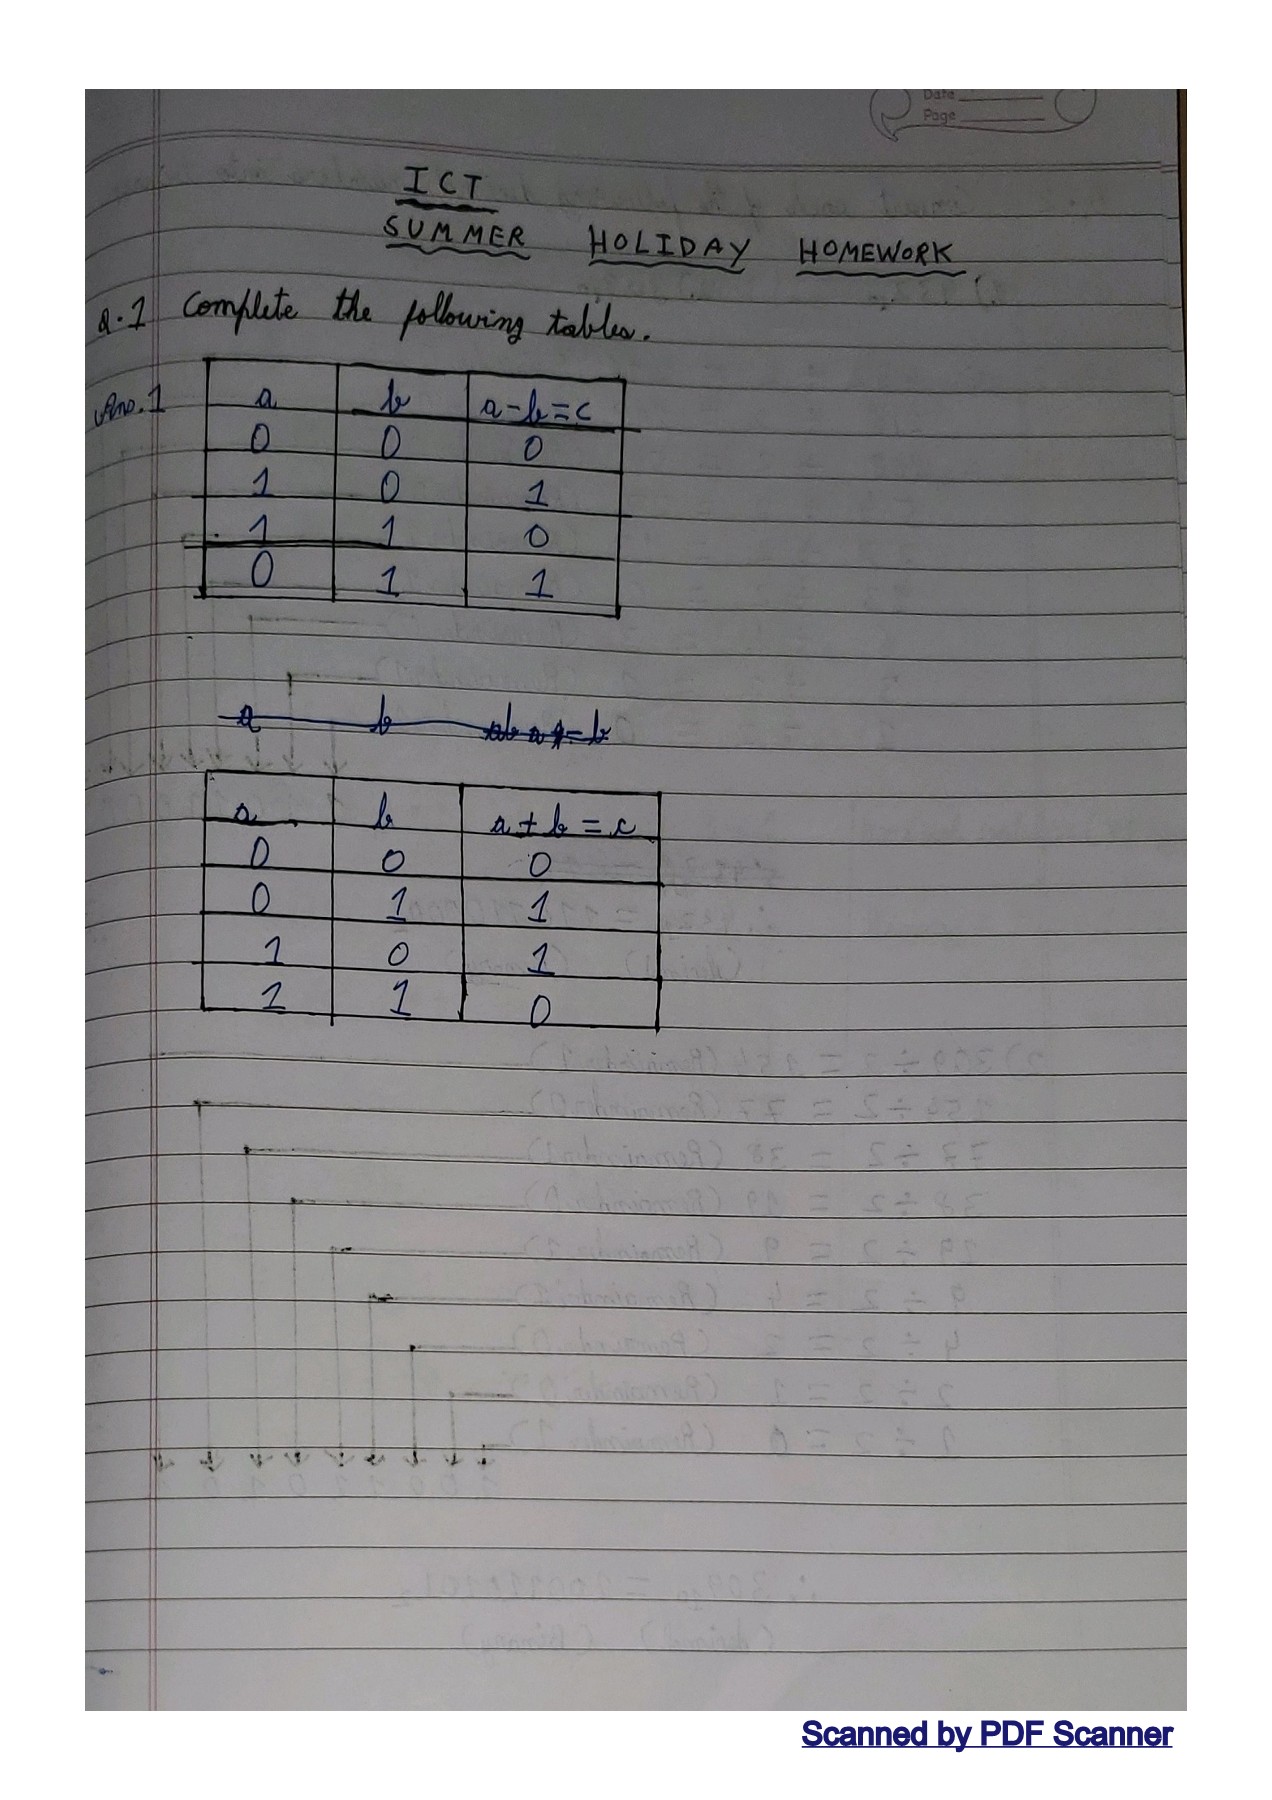 Date
Page
ICT
SUMMER HOLIDAY HOMEWORK
Q.1 Complete the following tables.
Ans.1
a b a-b=c
0 0 0
1 0 1
1 1 0
0 1 1
a b
a b a+b=c
0 0 0
0 1 1
1 0 1
1 1 0
Scanned by PDF Scanner